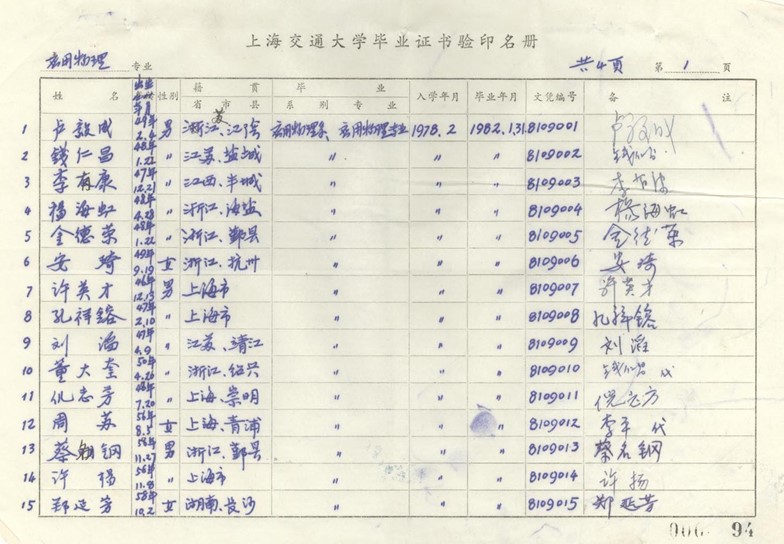 上海交通大学毕业证书验印名册
应用物理 专业 共4页 第 1 页
姓 名 出生年月 性别 籍贯 省市县 毕业 系别 专业 入学年月 毕业年月 文凭编号 备注
1 卢毅成 49年2.4 男 浙江、江 苏 应用物理系 应用物理专业 1978.2 1982.1.31 8109001
2 钱仁昌 48年1.22 〃 江苏、盐城 〃 〃 〃 8109002
3 李有康 47年12.21 〃 江西、丰城 〃 〃 〃 8109003
4 海虹 48年4.28 〃 浙江、海盐 〃 〃 〃 8109004 杨海虹
5 金德荣 48年1.22 〃 浙江、鄞县 〃 〃 〃 8109005 金德荣
6 安琦 49年9.19 女 浙江、杭州 〃 〃 〃 8109006 安琦
7 许英才 46年12.13 男 上海市 〃 〃 〃 8109007 许英才
8 孔祥鎔 47年2.10 〃 上海市 〃 〃 〃 8109008 孔祥鎔
9 刘滔 47年4.9 〃 江苏、靖江 〃 〃 〃 8109009 刘滔
10 董大奎 50年4.26 〃 浙江、绍兴 〃 〃 〃 8109010 代
11 仉志芳 7.20 〃 上海、崇明 〃 〃 〃 8109011 倪志方
12 周苏 56年8.5 女 上海、青浦 〃 〃 〃 8109012 李平 代
13 蔡 钢 58年11.27 男 浙江、鄞县 〃 〃 〃 8109013 蔡名钢
14 许扬 56年11.8 〃 上海市 〃 〃 〃 8109014 许扬
15 郑延芳 58年10.2 女 湖南、长沙 〃 〃 〃 8109015 郑延芳
006 94